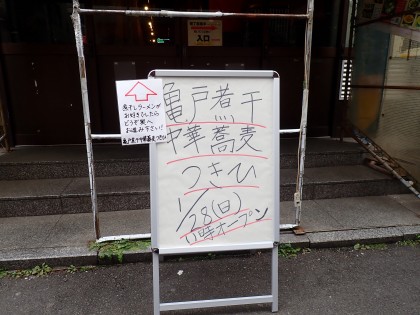 入口
煮干しラーメンが
お好きでしたら
どうぞ奥へ
お進み下さい!
亀戸煮干中華蕎麦つきひ
亀戸煮干
中華蕎麦
つきひ
1/28(日)
11時オープン